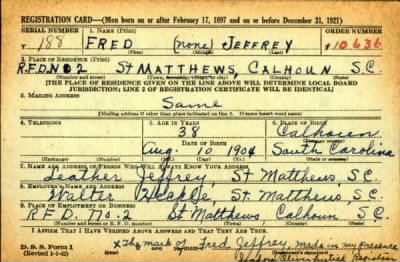 REGISTRATION CARD—(Men born on or after February 17, 1897 and on or before December 31, 1921)
SERIAL NUMBER 1. NAME (Print) ORDER NUMBER
T 188 FRED (none) JEFFREY 10636
(First) (Middle) (Last)
2. PLACE OF RESIDENCE (Print)
R.F.D. NO 2 St MATTHEWS, CALHOUN S.C.
(Number and street) (Town, township, village, or city) (County) (State)
[THE PLACE OF RESIDENCE GIVEN ON THE LINE ABOVE WILL DETERMINE LOCAL BOARD
JURISDICTION; LINE 2 OF REGISTRATION CERTIFICATE WILL BE IDENTICAL]
3. MAILING ADDRESS
Same
[Mailing address if other than place indicated on line 2. If same insert word same]
4. TELEPHONE 5. AGE IN YEARS 6. PLACE OF BIRTH
38 Calhoun
DATE OF BIRTH (Town or county)
Aug. 10 1904 South Carolina
(Exchange) (Number) (Mo.) (Day) (Yr.) (State or country)
7. NAME AND ADDRESS OF PERSON WHO WILL ALWAYS KNOW YOUR ADDRESS
Leather Jeffrey, St Matthews S.C.
8. EMPLOYER'S NAME AND ADDRESS
Walter St. Matthews, S.C.
9. PLACE OF EMPLOYMENT OR BUSINESS
R.F.D. No. 2 St Matthews, Calhoun S.C.
(Number and street or R. F. D. number) (Town) (County) (State)
I AFFIRM THAT I HAVE VERIFIED ABOVE ANSWERS AND THAT THEY ARE TRUE.
D. S. S. Form 1 x The mark of Fred Jeffrey, made in my Presence
(Revised 1-1-42) (over) (Registrant's signature) Registrar